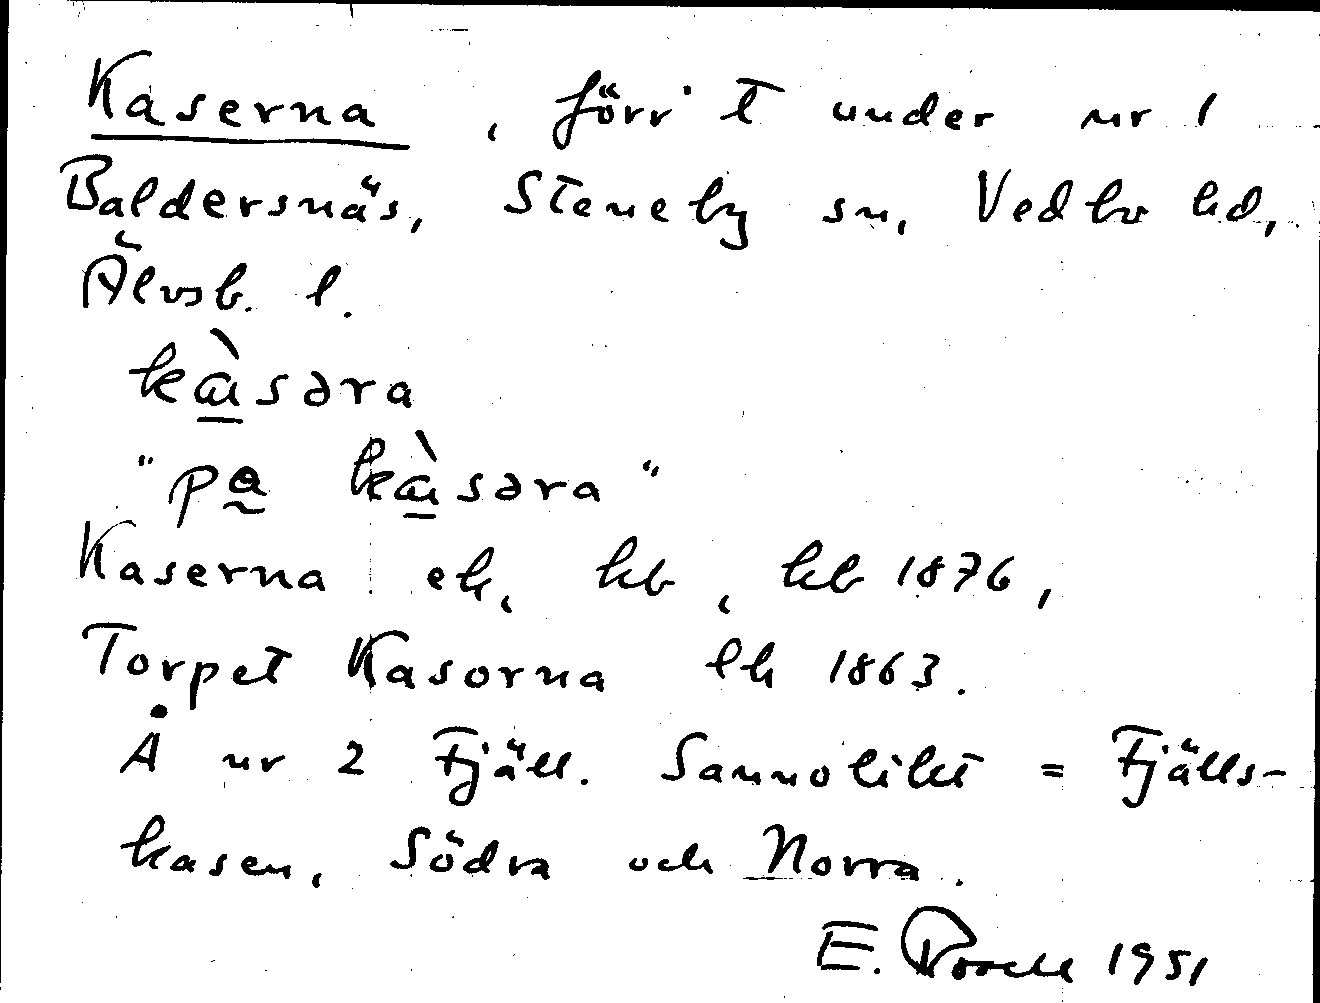 Kaserna, förr t under nr 1
Baldersnäs, Steneby sn, Vedbo hd,
Älvsb. l.
kàsəra
"pa kàsəra"
Kaserna ek, kb, kb 1876,
Torpet Kasorna lh 1863.
Å nr 2 Fjäll. Sannolikt = Fjälls-
kasen, Södra och Norra.
E. 1951